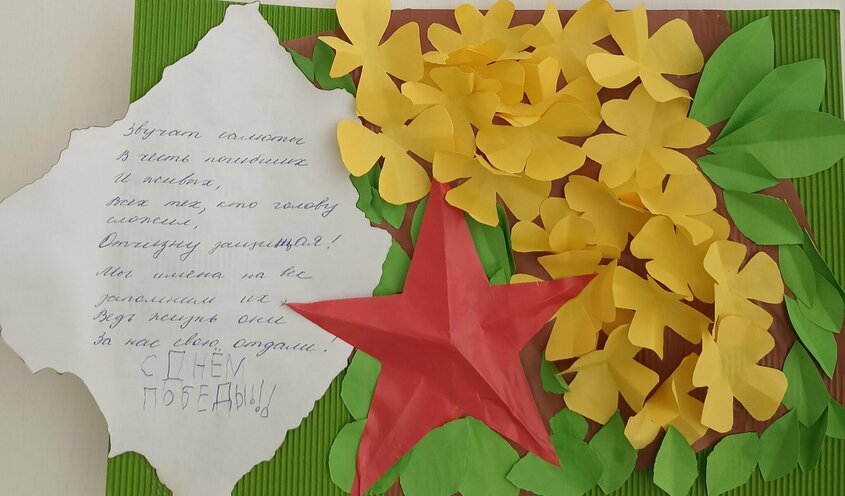 Звучат салюты
В честь погибших
И живых,
Всех тех, кто голову
сложил,
Отчизну защищая!
Мы имена на век
запомним их
Ведь жизнь они
За нас свою отдали!
С ДНЁМ
ПОБЕДЫ!!!